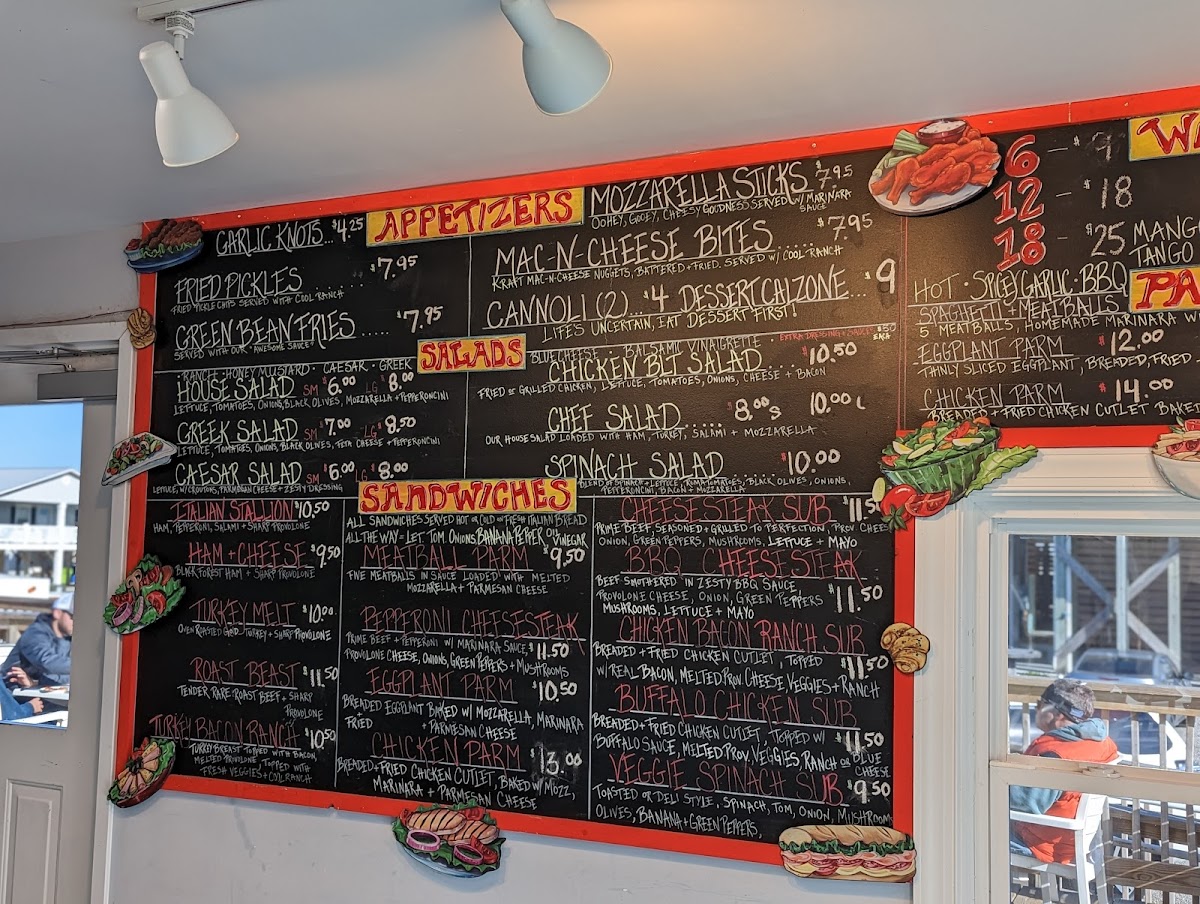 APPETIZERS
GARLIC KNOTS... $4.25
FRIED PICKLES ........ $7.95
FRIED PICKLE CHIPS SERVED WITH COOL RANCH
GREEN BEAN FRIES..... $7.95
SERVED WITH OUR AWESOME SAUCE
MOZZARELLA STICKS $7.95
OOHEY, GOOEY, CHEESY GOODNESS SERVED W/ MARINARA
SAUCE
MAC-N-CHEESE BITES..... $7.95
KRAFT MAC-N-CHEESE NUGGETS, BATTERED + FRIED. SERVED W/ COOL RANCH
CANNOLI (2)... $4 DESSERT CALZONE... $9
LIFE'S UNCERTAIN, EAT DESSERT FIRST!
SALADS
RANCH · HONEY MUSTARD · CAESAR · GREEK
BLUE CHEESE · BALSAMIC VINAIGRETTE · EXTRA DRESSING + SAUCES $.50 EACH
HOUSE SALAD SM $6.00 LG $8.00
LETTUCE, TOMATOES, ONIONS, BLACK OLIVES, MOZZARELLA + PEPPERONCINI
GREEK SALAD SM $7.00 LG $8.50
LETTUCE, TOMATOES, ONIONS, BLACK OLIVES, FETA CHEESE + PEPPERONCINI
CAESAR SALAD SM $6.00 LG $8.00
LETTUCE, W/ CROUTONS, PARMESAN CHEESE + ZESTY DRESSING
CHICKEN BLT SALAD... $10.50
FRIED OR GRILLED CHICKEN, LETTUCE, TOMATOES, ONIONS, CHEESE + BACON
CHEF SALAD..... $8.00 S 10.00 L
OUR HOUSE SALAD LOADED WITH HAM, TURKEY, SALAMI + MOZZARELLA
SPINACH SALAD..... $10.00
BLEND OF SPINACH + LETTUCE, ROMA TOMATOES, BLACK OLIVES, ONIONS,
PEPPERONCINI, BACON + MOZZARELLA
SANDWICHES
ITALIAN STALLION $10.50
HAM, PEPPERONI, SALAMI + SHARP PROVOLONE
HAM + CHEESE $9.50
BLACK FOREST HAM + SHARP PROVOLONE
TURKEY MELT $10.00
OVEN ROASTED TURKEY + SHARP PROVOLONE
ROAST BEAST $11.50
TENDER RARE ROAST BEEF + SHARP
PROVOLONE
TURKEY BACON RANCH $10.50
TURKEY BREAST TOPPED WITH BACON,
MELTED PROVOLONE, TOPPED WITH
FRESH VEGGIES + COOL RANCH
ALL SANDWICHES SERVED HOT OR COLD ON FRESH ITALIAN BREAD
ALL THE WAY = LET, TOM, ONIONS, BANANA PEPPER, OIL, VINEGAR
MEATBALL PARM $9.50
FIVE MEATBALLS IN SAUCE LOADED WITH MELTED
MOZZARELLA + PARMESAN CHEESE
PEPPERONI CHEESESTEAK
PRIME BEEF + PEPPERONI W/ MARINARA SAUCE, $11.50
PROVOLONE CHEESE, ONIONS, GREEN PEPPERS + MUSHROOMS
EGGPLANT PARM $10.50
BREADED EGGPLANT BAKED W/ MOZZARELLA, MARINARA
FRIED + PARMESAN CHEESE
CHICKEN PARM $13.00
BREADED + FRIED CHICKEN CUTLET, BAKED W/ MOZZ,
MARINARA + PARMESAN CHEESE
CHEESESTEAK SUB $11.50
PRIME BEEF, SEASONED + GRILLED TO PERFECTION, PROV CHEE
ONION, GREEN PEPPERS, MUSHROOMS, LETTUCE + MAYO
BBQ CHEESESTEAK
BEEF SMOTHERED IN ZESTY BBQ SAUCE
PROVOLONE CHEESE, ONION, GREEN PEPPERS $11.50
MUSHROOMS, LETTUCE + MAYO
CHICKEN BACON RANCH SUB
BREADED + FRIED CHICKEN CUTLET, TOPPED $11.50
W/ REAL BACON, MELTED PROV. CHEESE, VEGGIES + RANCH
BUFFALO CHICKEN SUB
BREADED + FRIED CHICKEN CUTLET, TOPPED W/ $11.50
BUFFALO SAUCE, MELTED PROV. VEGGIES, RANCH OR BLUE
CHEESE
VEGGIE SPINACH SUB $9.50
TOASTED OR DELI STYLE, SPINACH, TOM, ONION, MUSHROOM
OLIVES, BANANA + GREEN PEPPERS,
6 - $9
12 - $18
18 - $25
MANGO
TANGO
HOT · SPICY GARLIC · BBQ
SPAGHETTI + MEATBALLS
5 MEATBALLS, HOMEMADE MARINARA W
EGGPLANT PARM $12.00
THINLY SLICED EGGPLANT, BREADED, FRIED
CHICKEN PARM $14.00
BREADED + FRIED CHICKEN CUTLET BAKE